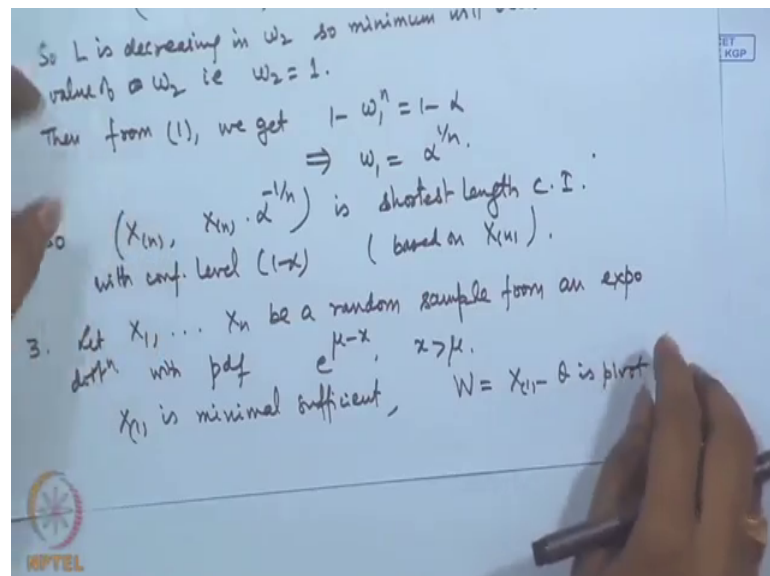 So L is decreasing in w₂ so minimum will
value of w₂ ie w₂ = 1.
Then from (1), we get 1 - w₁ⁿ = 1 - α
⇒ w₁ = α^{1/n}.
So (X₍ₙ₎, X₍ₙ₎ · α^{-1/n}) is shortest length C.I.
with conf. level (1-α) (based on X₍ₙ₎).
3. Let X₁, ... Xₙ be a random sample from an expo
distⁿ with pdf e^{μ-x}, x > μ.
X₍₁₎ is minimal sufficient, W = X₍₁₎ - θ is pivot
ET
KGP
NPTEL